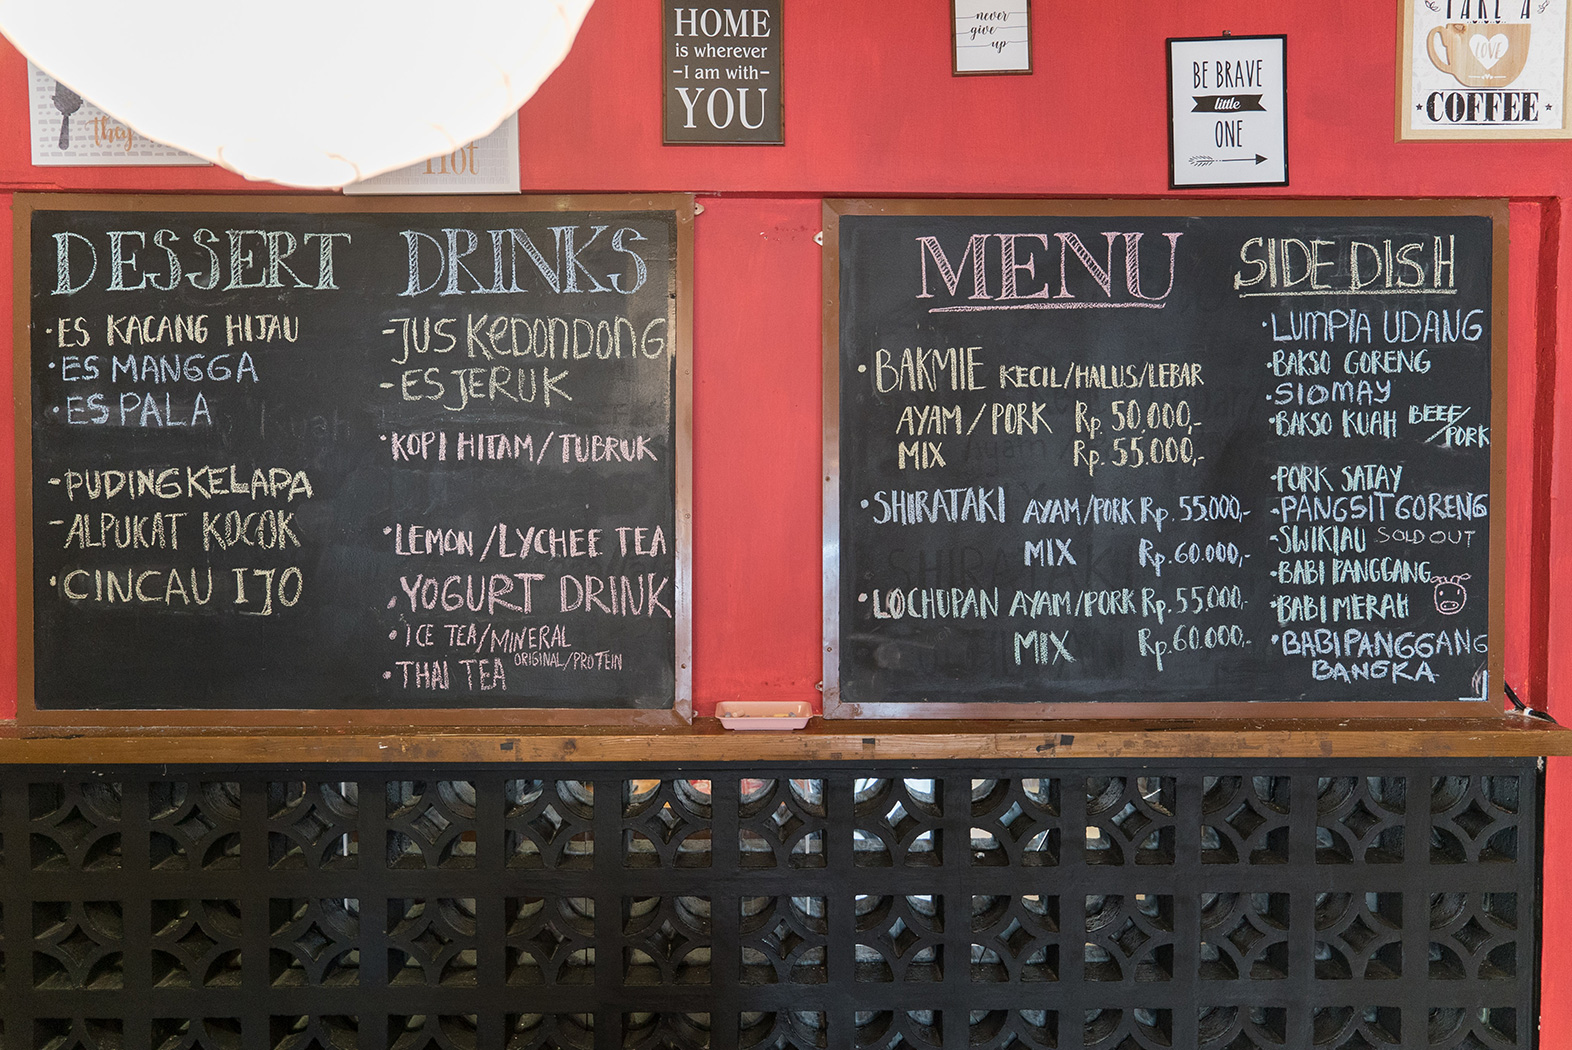 HOME
is wherever
-I am with-
YOU
never
give
up
BE BRAVE
little
ONE
TAKE A
LOVE
COFFEE
they
Hot
DESSERT
·ES KACANG HIJAU
·ES MANGGA
·ES PALA
-PUDING KELAPA
-ALPUKAT KOCOK
·CINCAU IJO
DRINKS
-JUS KEDONDONG
-ES JERUK
·KOPI HITAM/TUBRUK
·LEMON/LYCHEE TEA
·YOGURT DRINK
·ICE TEA/MINERAL
ORIGINAL/PROTEIN
·THAI TEA
MENU
·BAKMIE KECIL/HALUS/LEBAR
AYAM/PORK Rp. 50.000,-
MIX Rp. 55.000,-
·SHIRATAKI AYAM/PORK Rp. 55.000,-
MIX Rp. 60.000,-
·LOCHUPAN AYAM/PORK Rp. 55.000,-
MIX Rp. 60.000,-
SIDE DISH
·LUMPIA UDANG
·BAKSO GORENG
·SIOMAY
·BAKSO KUAH BEEF/PORK
·PORK SATAY
·PANGSIT GORENG
·SWIKIAU SOLD OUT
·BABI PANGGANG
·BABI MERAH
·BABI PANGGANG
BANGKA